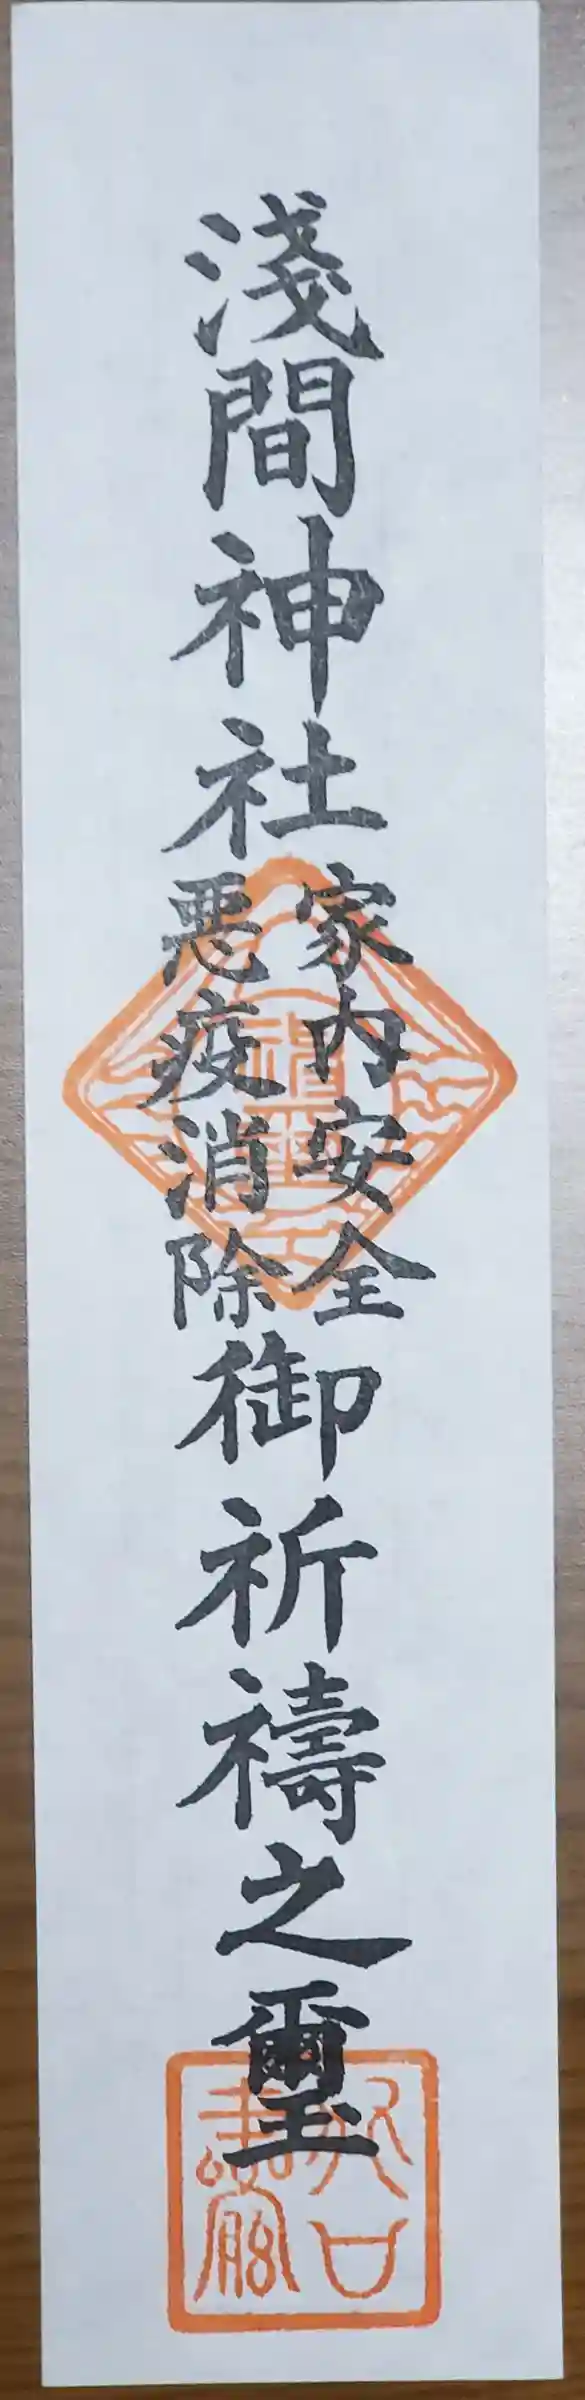 淺間神社
家内安全
悪疫消除
御祈禱之璽